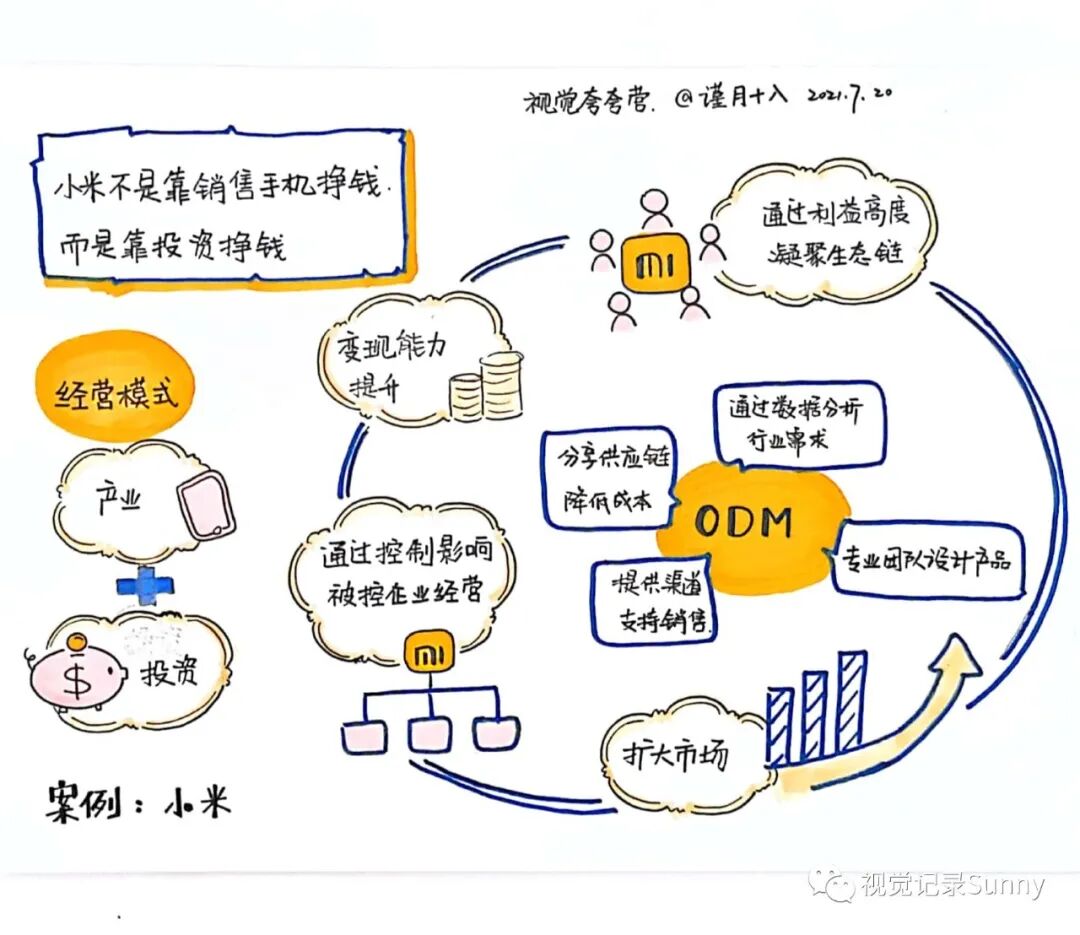 视觉夸夸营. @谨月十入 2021.7.20
小米不是靠销售手机挣钱.
而是靠投资挣钱
经营模式
产业
投资
$
案例：小米
变现能力
提升
通过控制影响
被控企业经营
mi
mi
通过利益高度
凝聚生态链
通过数据分析
行业需求
分享供应链
降低成本
ODM
专业团队设计产品
提供渠道
支持销售.
扩大市场
视觉记录Sunny